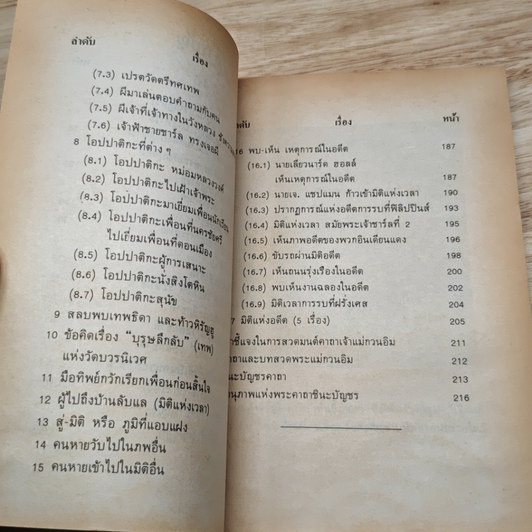 ลำดับ
เรื่อง
(7.3) เปรตวัดตรีทศเทพ
(7.4) ผีมาเล่นตอบคำถามกับคน
(7.5) ผีเจ้าที่เจ้าทางในวังหลวง
(7.6) เจ้าฟ้าชายชาร์ล ทรงเจอผี
8 โอปปาติกะที่ต่าง ๆ
(8.1) โอปปาติกะ หม่อมหลวงวงค์
(8.2) โอปปาติกะไปเฝ้าเจ้าพระ
(8.3) โอปปาติกะมาเยี่ยมเพื่อนนักเรียน
(8.4) โอปปาติกะเพื่อนที่นครชัยศรี
ไปเยี่ยมเพื่อนที่ดอนเมือง
(8.5) โอปปาติกะผู้การเสนาะ
(8.6) โอปปาติกะนั่งสิงโตหิน
(8.7) โอปปาติกะสุนัข
9 สลบพบเทพธิดา และท้าวหิรัญฮู
10 ข้อคิดเรื่อง "บุรุษลึกลับ" (เทพ)
แห่งวัดบวรนิเวศ
11 มือทิพย์กวักเรียกเพื่อนก่อนสิ้นใจ
12 ผู้ไปถึงบ้านลับแล (มิติแห่งเวลา)
13 สู่-มิติ หรือ ภูมิที่แอบแฝง
14 คนหายวับไปในภพอื่น
15 คนหายเข้าไปในมิติอื่น
ดับ เรื่อง หน้า
16 พบ-เห็น เหตุการณ์ในอดีต 187
(16.1) นายเลียวนาร์ด ฮอลล์
เห็นเหตุการณ์ในอดีต 187
(16.2) นายเจ. แชปแมน ก้าวเข้ามิติแห่งเวลา 190
(16.3) ปรากฏการณ์แห่งอดีตการรบที่ฟิลิปปินส์ 193
(16.4) มิติแห่งเวลา สมัยพระเจ้าชาร์ลที่ 2 195
(16.5) เห็นภาพอดีตของพวกอินเดียนแดง 196
(16.6) ขับรถผ่านมิติอดีต 198
(16.7) เห็นถนนรุ่งเรืองในอดีต 200
(16.8) พบเห็นงานฉลองในอดีต 202
(16.9) มิติเวลาการรบที่ฝรั่งเศส 204
7 มิติแห่งอดีต (5 เรื่อง) 205
ชี้แจงในการสวดมนต์คาถาเจ้าแม่กวนอิม 211
ถาและบทสวดพระแม่กวนอิม 212
นะบัญชรคาถา 213
นุภาพแห่งพระคาถาชินะบัญชร 216